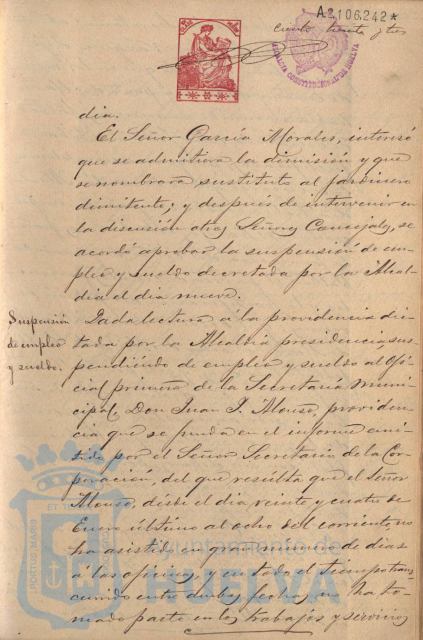 A2106.242*
ciento treinta y tres
ALCALDIA CONSTITUCIONAL DE HUELVA
dia.
El Señor García Morales, interesó
que se admitiera la dimisión y que
se nombrara sustituto al jardinero
dimitente; y después de intervenir en
la discusión otros Señores Concejales, se
acordó aprobar la suspensión de em-
pleo y sueldo decretada por la Alcal-
día el día nueve.
Suspensión
de empleo
y sueldo.
Dada lectura á la providencia dic-
tada por la Alcaldía presidencia sus-
pendiéndo de empleo y sueldo al Ofi-
cial primero de la Secretaría muni-
cipal, Don Juan J. Alonso, providen-
cia que se funda en el informe emi-
tido por el Señor Secretario de la Cor-
poración, del que resulta que el Señor
Alonso, desde el dia veinte y cuatro de
Enero último al ocho del corriente, no
ha asistido en gran número de dias
á las oficinas y en todo el tiempo trans-
currido entre ambas fechas no ha to-
mado parte en los trabajos y servicios
Ayuntamiento de
HUELVA
PORTUS MARIS
ET TERRE